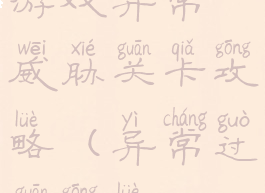 游戏异常
wēi xié guān qiǎ gōng
威胁关卡攻
lüè yì cháng guò
略（异常过
guān gōng lüè